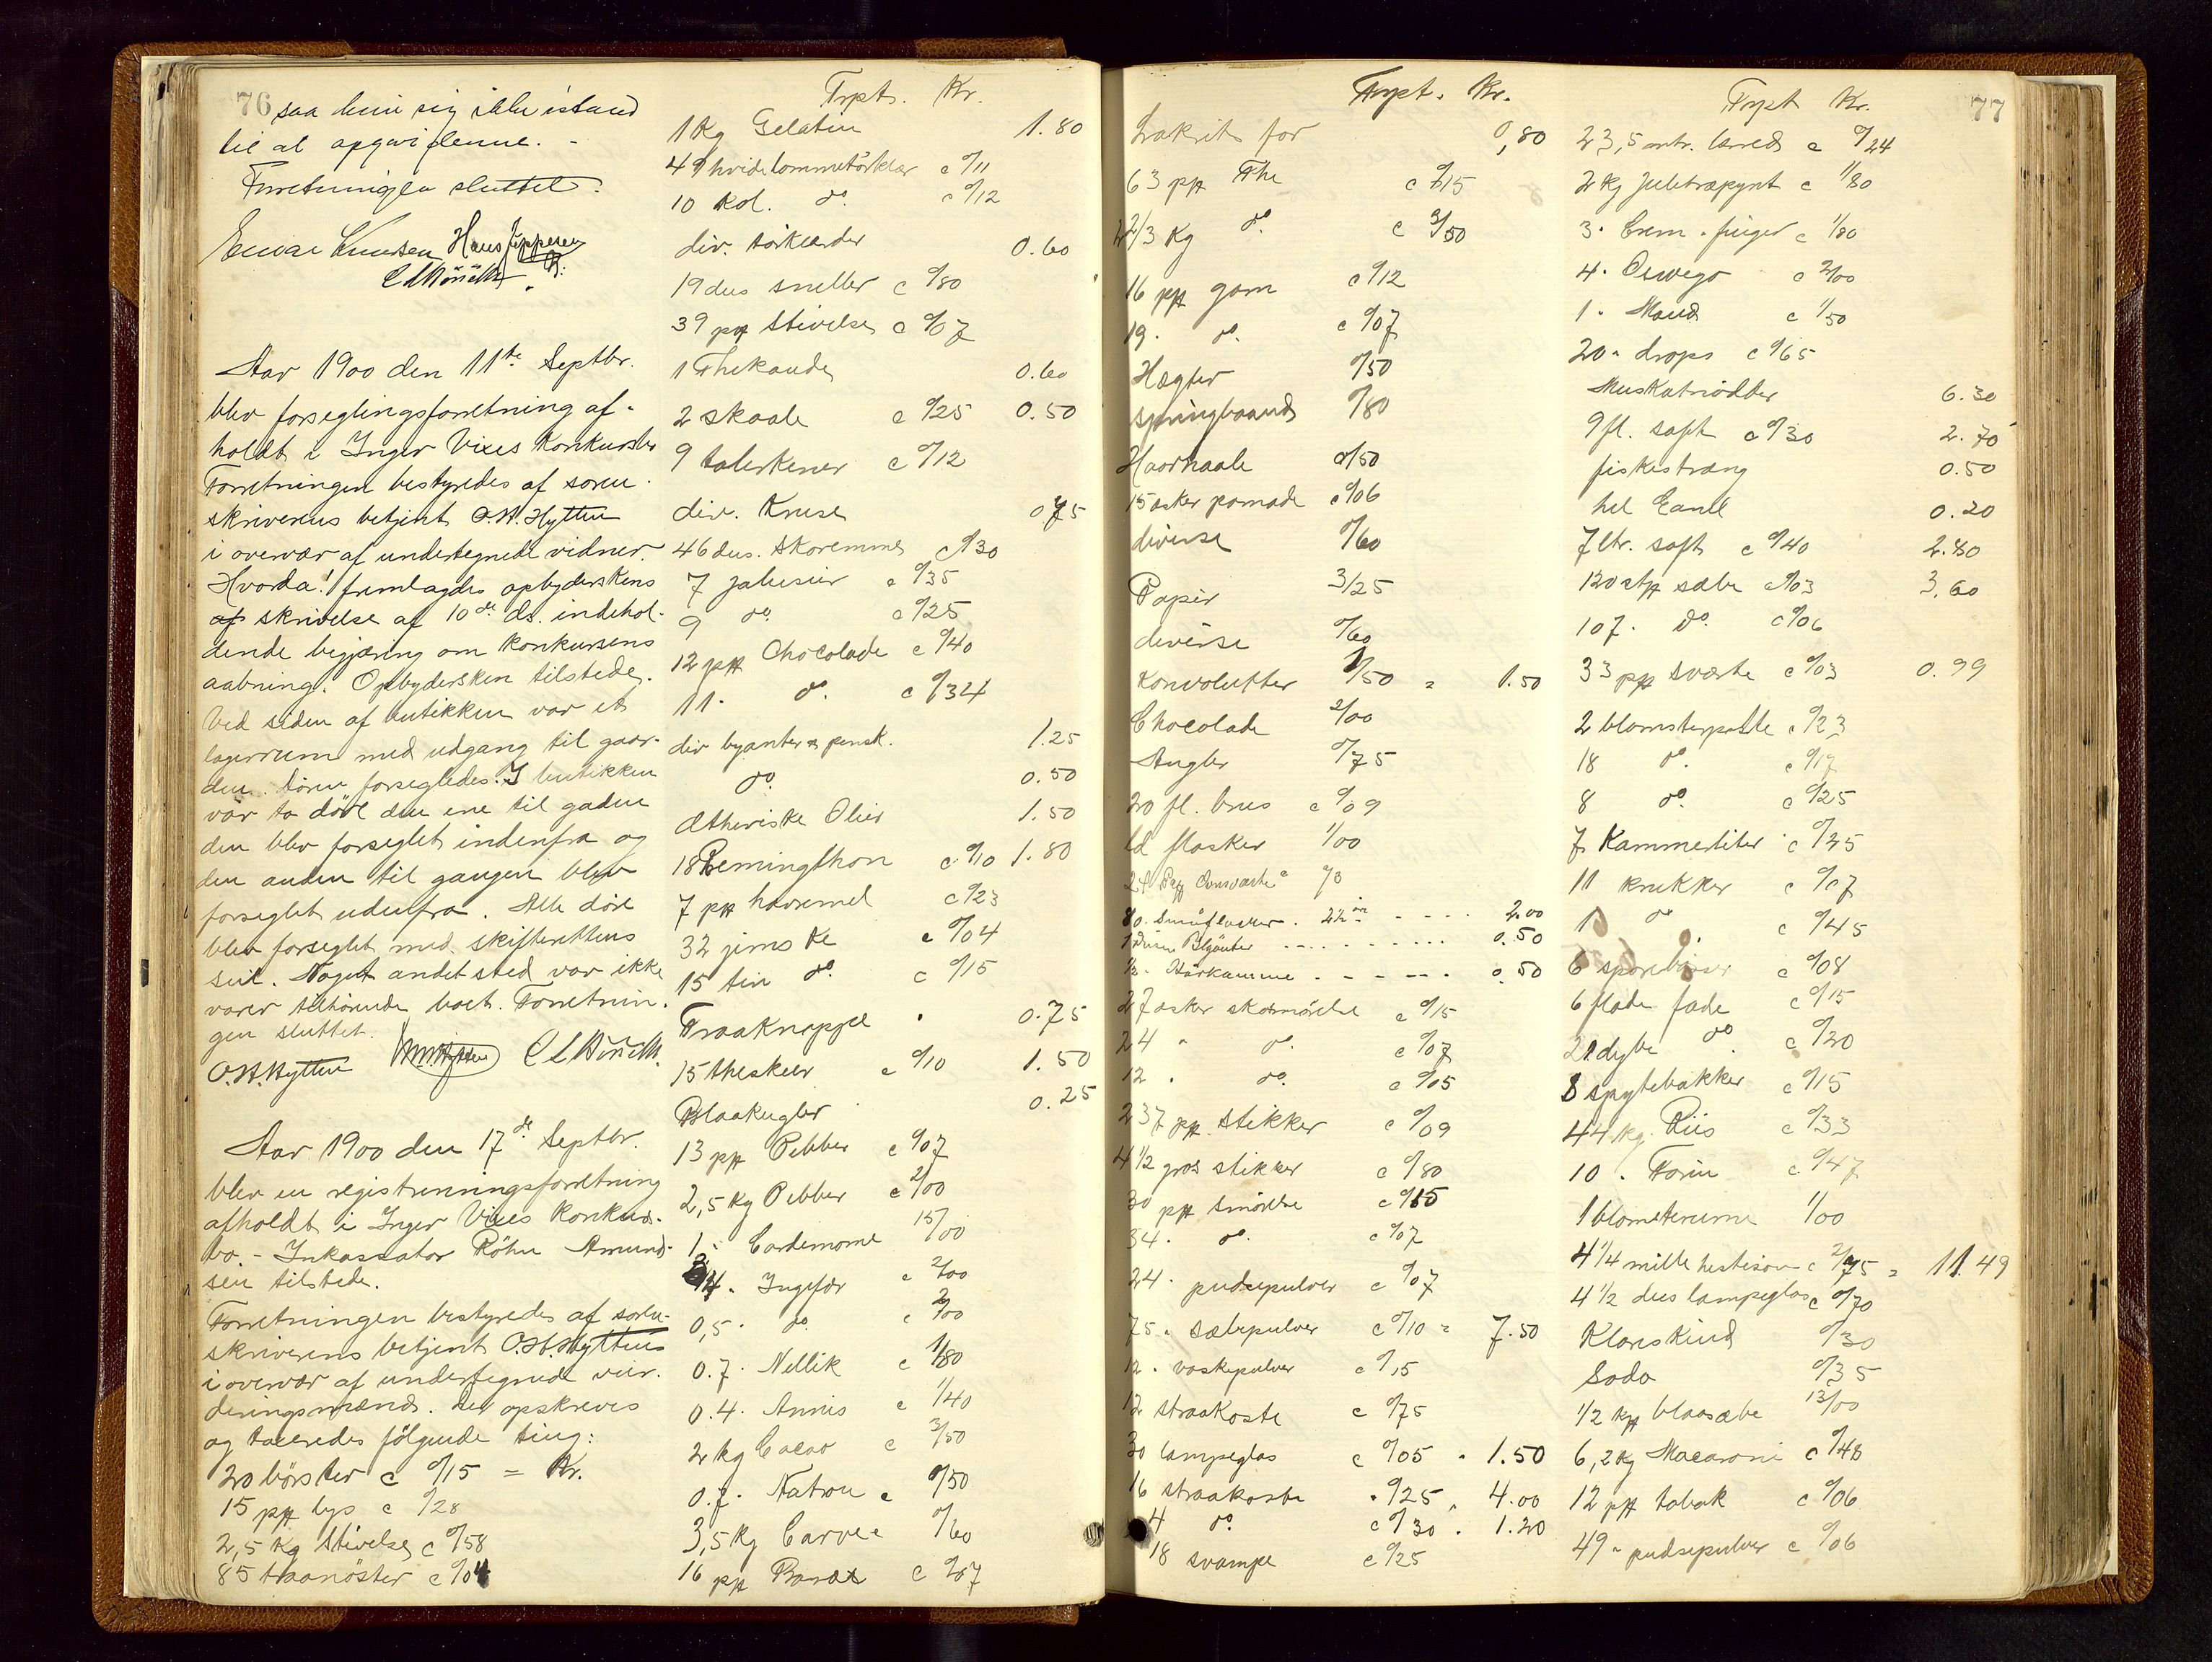 76
saa
sig ikke istand
til at opgive denne. -
Forretningen sluttet.
Einar Knudsen Hans Jeppesen
Aar 1900 den 11te Septbr.
blev forseglingsforretning af-
holdt i Inger Vixes Konkursbo
Forretningen bestyredes af soren-
skriverens betjent O.H. Hytten
i overvær af undertegnede vidner.
Hvorda! fremlagdes opbyderskens
skrivelse af 10de ds. indehol-
dende begjæring om konkursens
aabning. Opbydersken tilstede.
Ved siden af butikken var et
lagerrum med udgang til gaar-
den. Døren forsegledes. I butikken
var to døre den ene til gaden
den blev forseglet indenfra og
den anden til gangen blev
forseglet udenfra. Alle døre
blev forseglet med skifterettens
seil. Noget andet sted var ikke
varer tilhørende boet. Forretnin-
gen sluttet.
O.H. Hytten
Aar 1900 den 17de Septbr.
blev en registreringsforretning
afholdt i Inger Vixes Konkurs-
bo. - Inkassator Röhn Amund-
sen tilstede.
Forretningen bestyredes af soren-
skriverens betjent O.H. Hytten
i overvær af undertegnede vur-
deringsmænd. Der opskreves
og taxeredes følgende ting:
20 børster c 0/15 = Kr.
15 ppk lys c 0/28
2,5 Kg Stivelse c 0/58
85 traanöster c 0/04
Trpt. Kr.
1 Kg Gelatin 1.80
49 hvide lommetörklær c 0/11
10 Kol. do. c 0/12
div. törklæder 0.60
19 dus sneller c 0/80
39 ppk Stivelse c 0/07
1 Thekande 0.60
2 skaale c 0/25 0.50
9 talerkener c 0/12
div. Kruse 0.75
46 dus. Skoremmer c 0/30
7 jalusier c 0/35
9 do. c 0/25
12 ppk Chocolade c 0/40
11 . do. c 0/34
div byanter & pensk. 1.25
do. 0.50
Ætheriske Olier 1.50
18 Remingthon c 0/10 1.80
7 ppk havremel c 0/23
32 c 0/04
15 tin do. c 0/15
Traaknappe . 0.75
15 theskeer c 0/10 1.50
Blaakugler 0.25
13 ppk Pebber c 0/07
2,5 Kg Pebber c 2/00
1 . Cardemome 15/00
4 . Ingefær c 2/00
0,5 . do. c 2/00
0.7 . Nellik c 1/80
0.4 . Annis c 1/40
2 kg Cacao c 3/50
0.7 . Natron c 0/50
3,5 Kg Carve c 0/60
16 ppk Borax c 0/07
77
Trpt. Kr.
Lakrits for 0,80
63 ppk The c 0/15
2 2/3 Kg do. c 3/50
16 ppk gom c 0/12
19 . do. c 0/07
Hægter 0/50
springbaand 0/80
Haarnaale 0/50
15 æsker pomade c 0/06
diverse 0/60
Papir 3/25
diverse 0/60
Konvolutter 1/50 = 1.50
Chocolade 2/00
Angler 0/75
20 fl. brus c 0/09
ld flasker 1/00
24 Ovnsværte 0/3
80. Småflasker. 2½ - - - - 2.00
1 Dusin Blyanter - - - - - 0.50
½ - Hårkamme - - - - - 0.50
27 æsker skosmörelse c 0/15
24 " do. c 0/07
12 . do. c 0/05
237 pp. stikker c 0/09
4 1/2 gros stikker c 0/80
30 ppk smörelse c 0/15
34 . do. c 0/07
24 . pudsepulver c 0/07
75 . sæbepulver c 0/10 = 7.50
12 . vaskepulver c 0/15
12 straakoste c 0/75
30 lampeglas c 0/05 . 1.50
16 straakoste . 0/25 . 4.00
4 do. c 0/30 . 1.20
18 svampe c 0/25
Trpt Kr.
23,5 mtr. lærred c 0/24
2 Kg Juletræpynt c 1/80
3 . Crem . c 1/80
4 . Oswego c 2/00
1 . c 1/50
20 . drops c 0/65
Muskatnødder 6.30
9 fl. saft c 0/30 2.70
fiskestræng 0.50
hel 0.20
7 ltr. saft c 0/40 2.80
120 stk sæbe c 0/03 3.60
107 . do. c 0/06
33 ppk sværte c 0/03 0.99
2 blomsterpotte c 0/23
18 do. c 0/17
8 do. c 0/25
7 Kammerliter c 0/25
11 krukker c 0/07
1 do c 0/45
6 c 0/08
6 flade fade c 0/15
21 dybe do. c 0/20
8 spytebakker c 0/15
44 kg. Riis c 0/33
10 . Farin c 0/47
1 blomsterurne 1/00
4 1/4 mille hestesøm c 2/75 = 11.49
4 1/2 dus lampeglas c 0/70
Klareskind 0/30
Soda 0/35
1/2 kp blaasæbe 13/00
6,2 Kg Macaroni c 0/48
12 ppk tobak c 0/06
49 . pudsepulver c 0/06